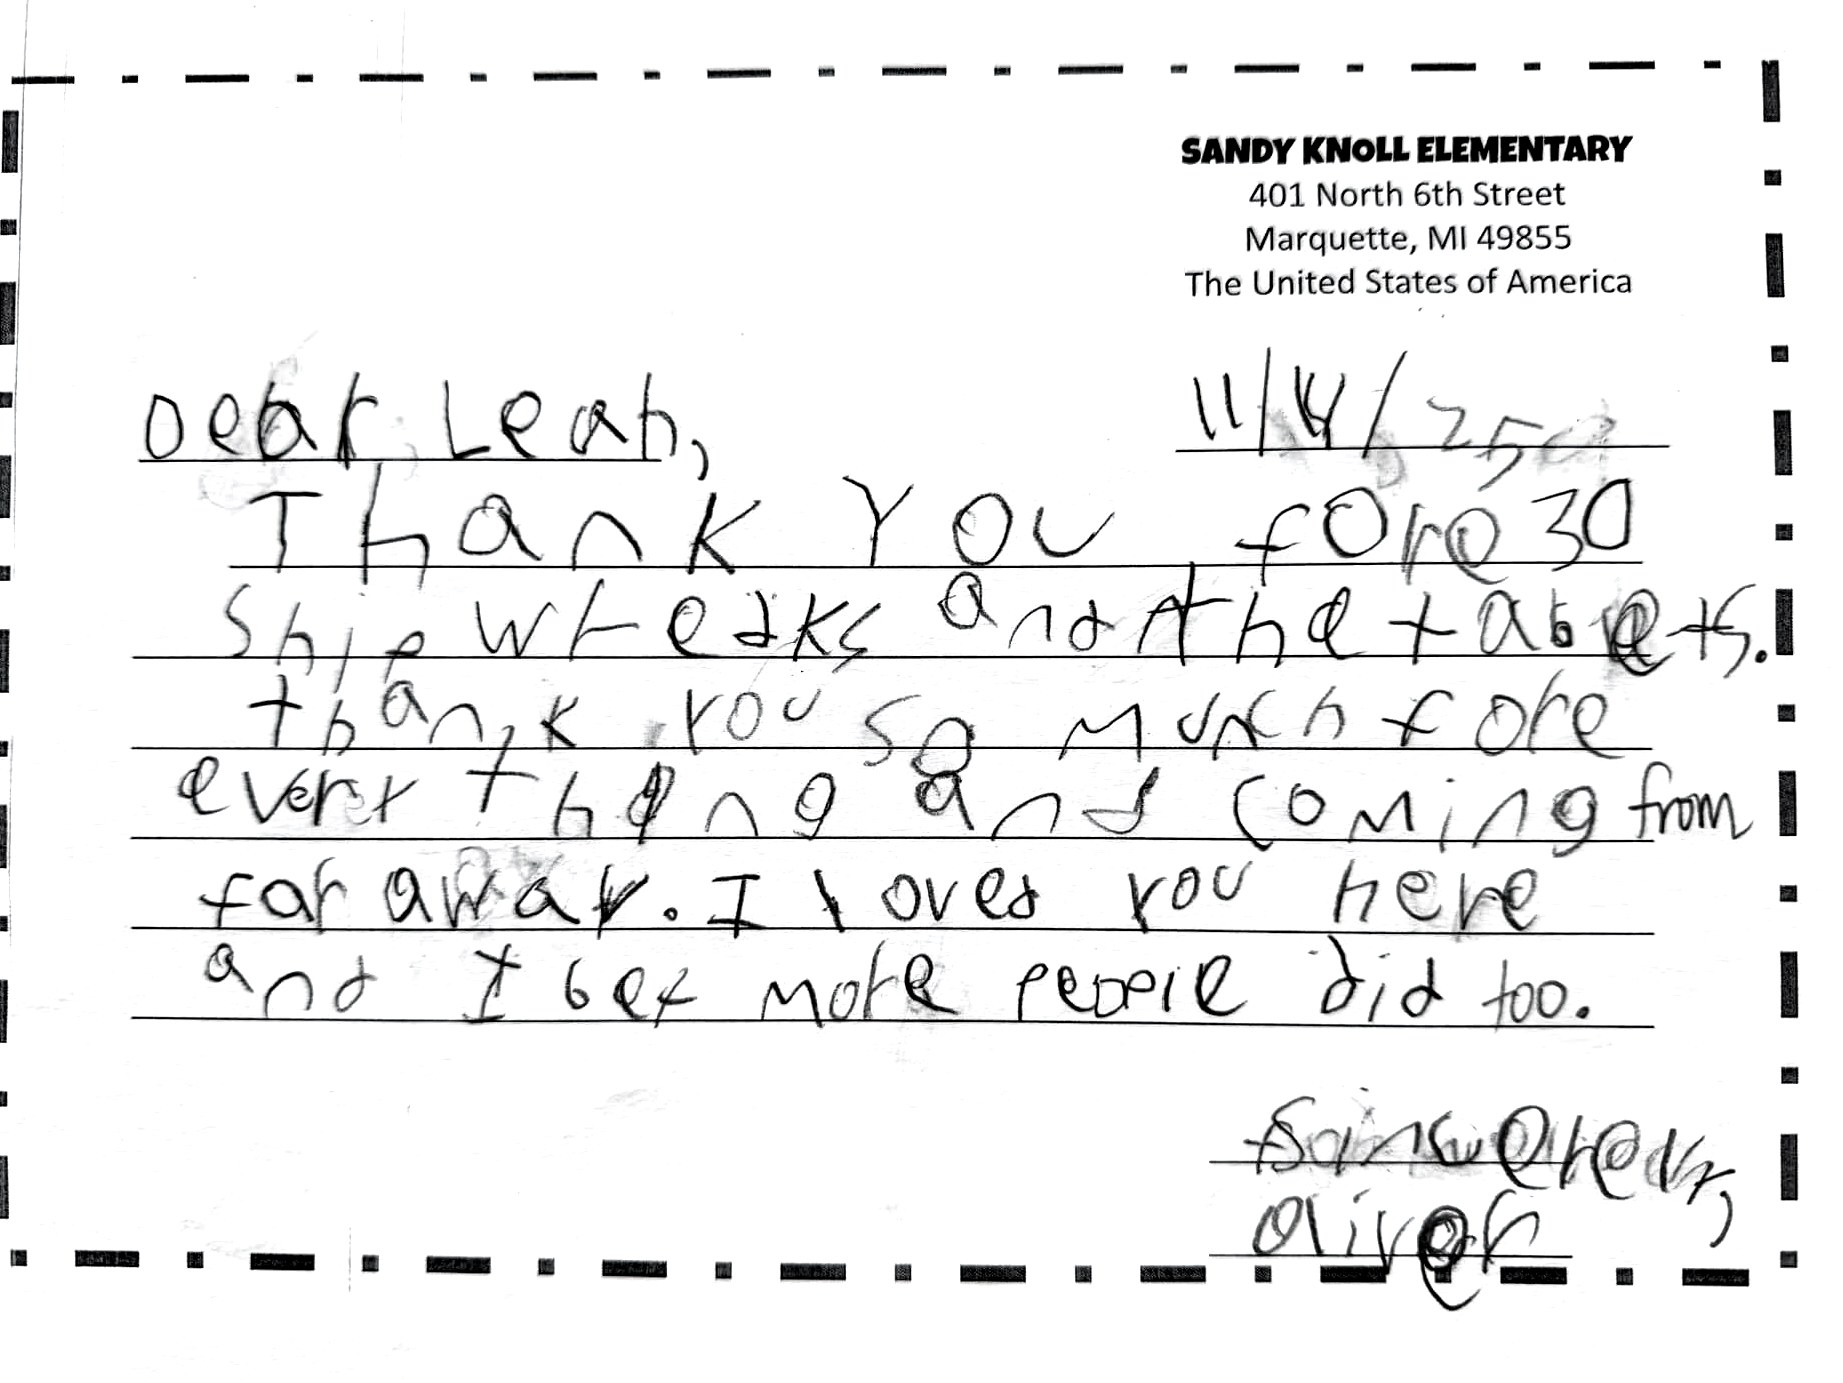 SANDY KNOLL ELEMENTARY
401 North 6th Street
Marquette, MI 49855
The United States of America
Dear Leah,
11/4/25
Thank You fore 30
Ship wreaks and the tabets.
thank you so much fore
every thing and coming from
far away. I loved you here
and I bet more people did too.
Oliver